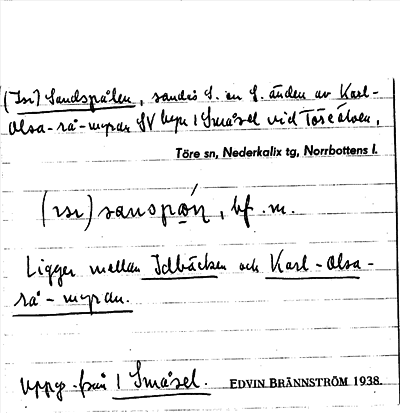 (Isr) Sandspålen, sandås S. en S. änden av Karl-
Olsa-rå-myran SV byn 1 Småsel vid Töreälven,
Töre sn, Nederkalix tg, Norrbottens l.
(ısr) sanspǫń, bf. m.
Ligger mellan Idbäcken och Karl-Olsa-
rå-myran.
Uppg. från 1 Småsel. EDVIN BRÄNNSTRÖM 1938.